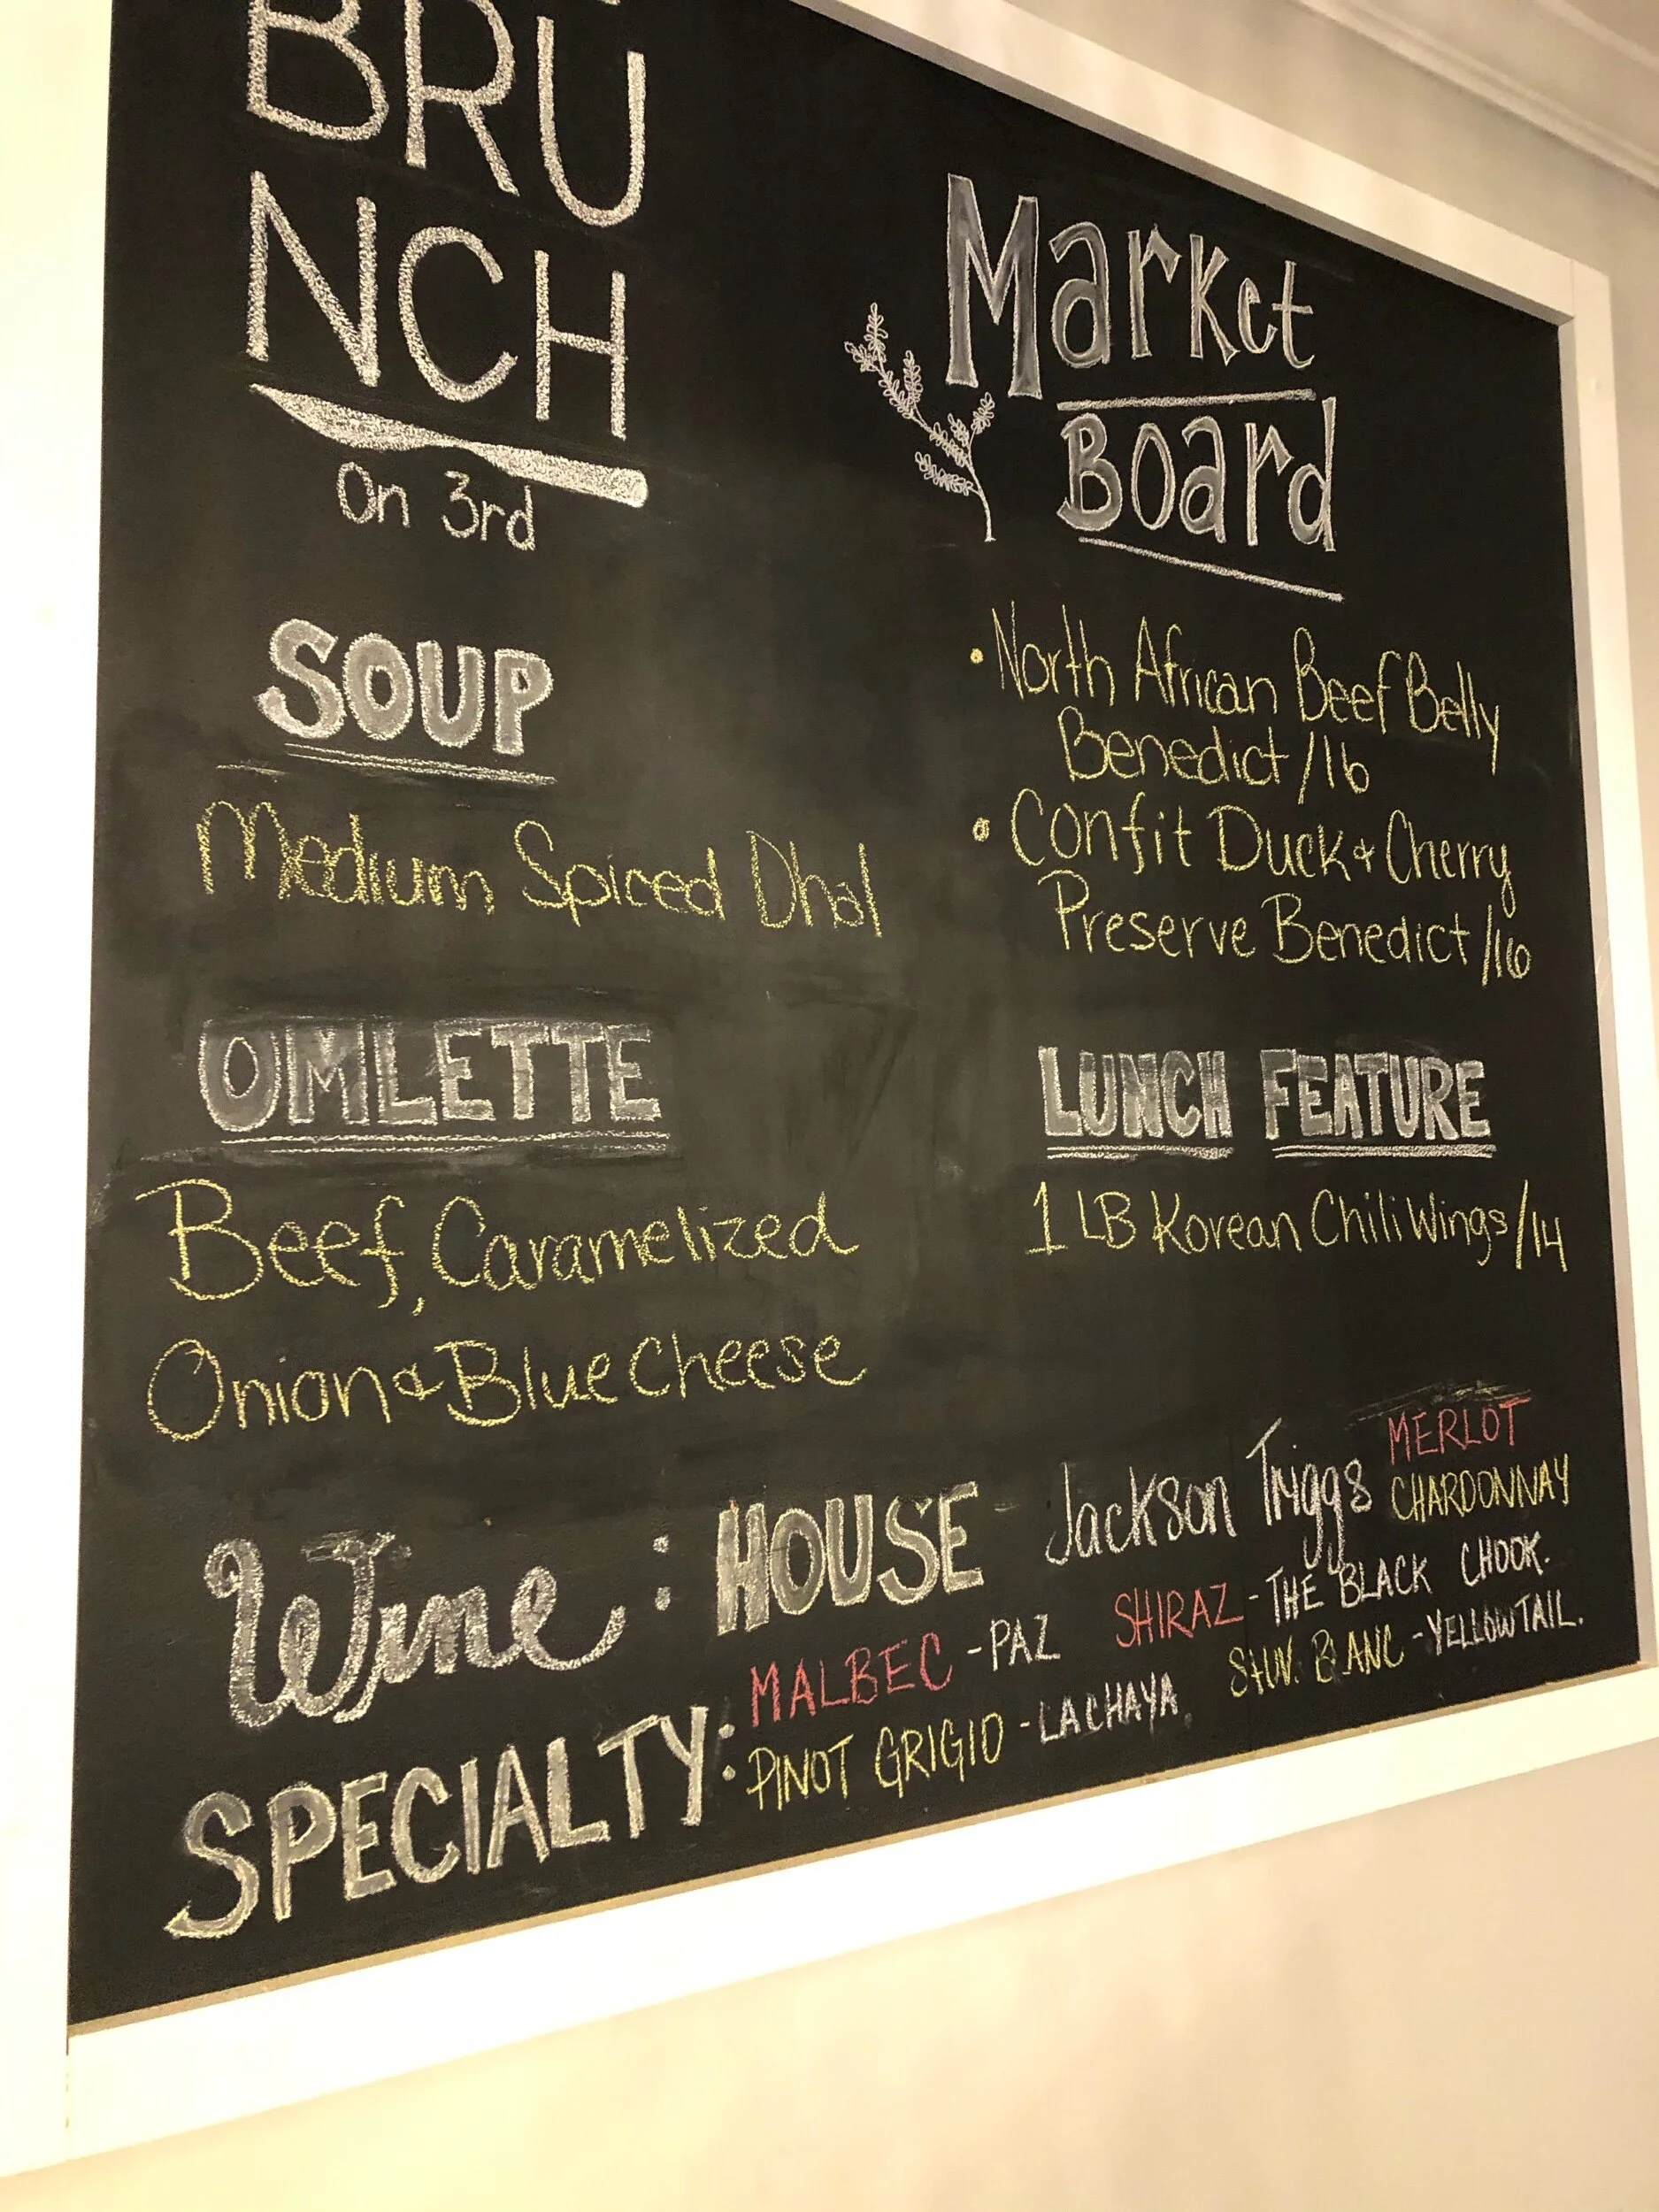 BRU
NCH
On 3rd
SOUP
Medium Spiced Dhal
OMLETTE
Beef, Caramelized
Onion & Blue Cheese
Market
Board
• North African Beef Belly
Benedict /16
• Confit Duck & Cherry
Preserve Benedict /16
LUNCH FEATURE
1 LB Korean Chili Wings /14
Wine : HOUSE - Jackson Triggs MERLOT
CHARDONNAY
SPECIALTY: MALBEC - PAZ SHIRAZ - THE BLACK CHOOK.
PINOT GRIGIO - LA CHAYA. SAUV. BLANC - YELLOWTAIL.